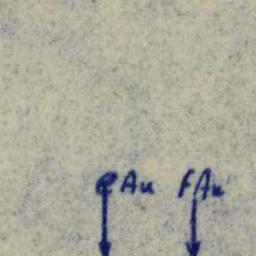 eAu fAu